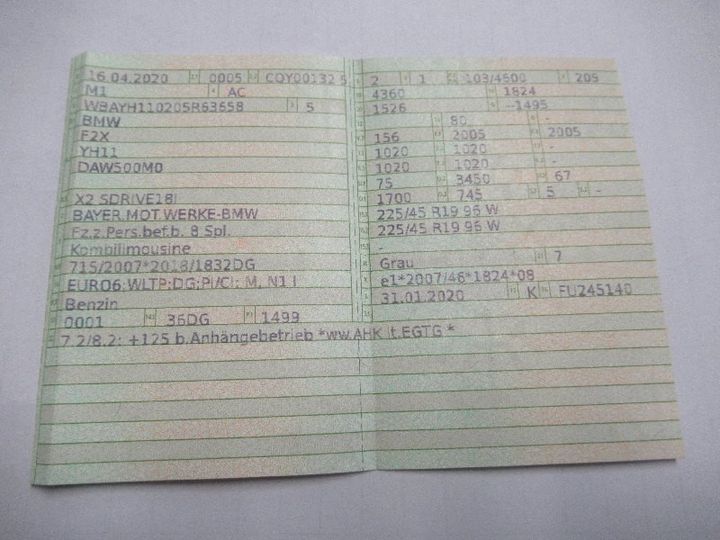 16.04.2020 0005 CQY00132 5
M1 AC
WBAYH110205R63658 5
BMW
F2X
YH11
DAW500M0
X2 SDRIVE18I
BAYER.MOT.WERKE-BMW
Fz.z.Pers.bef.b. 8 Spl.
Kombilimousine
715/2007*2018/1832DG
EURO6;WLTP;DG;PI/CI; M, N1 I
Benzin
0001 36DG 1499
7.2/8.2: +125 b.Anhängebetrieb *ww.AHK lt.EGTG *
2 1 103/4600 205
4360 1824
1526 --1495
80 -
156 2005 2005
1020 1020 -
1020 1020 -
75 3450 67
1700 745 5 -
225/45 R19 96 W
225/45 R19 96 W
-
Grau 7
e1*2007/46*1824*08
31.01.2020 K FU245140